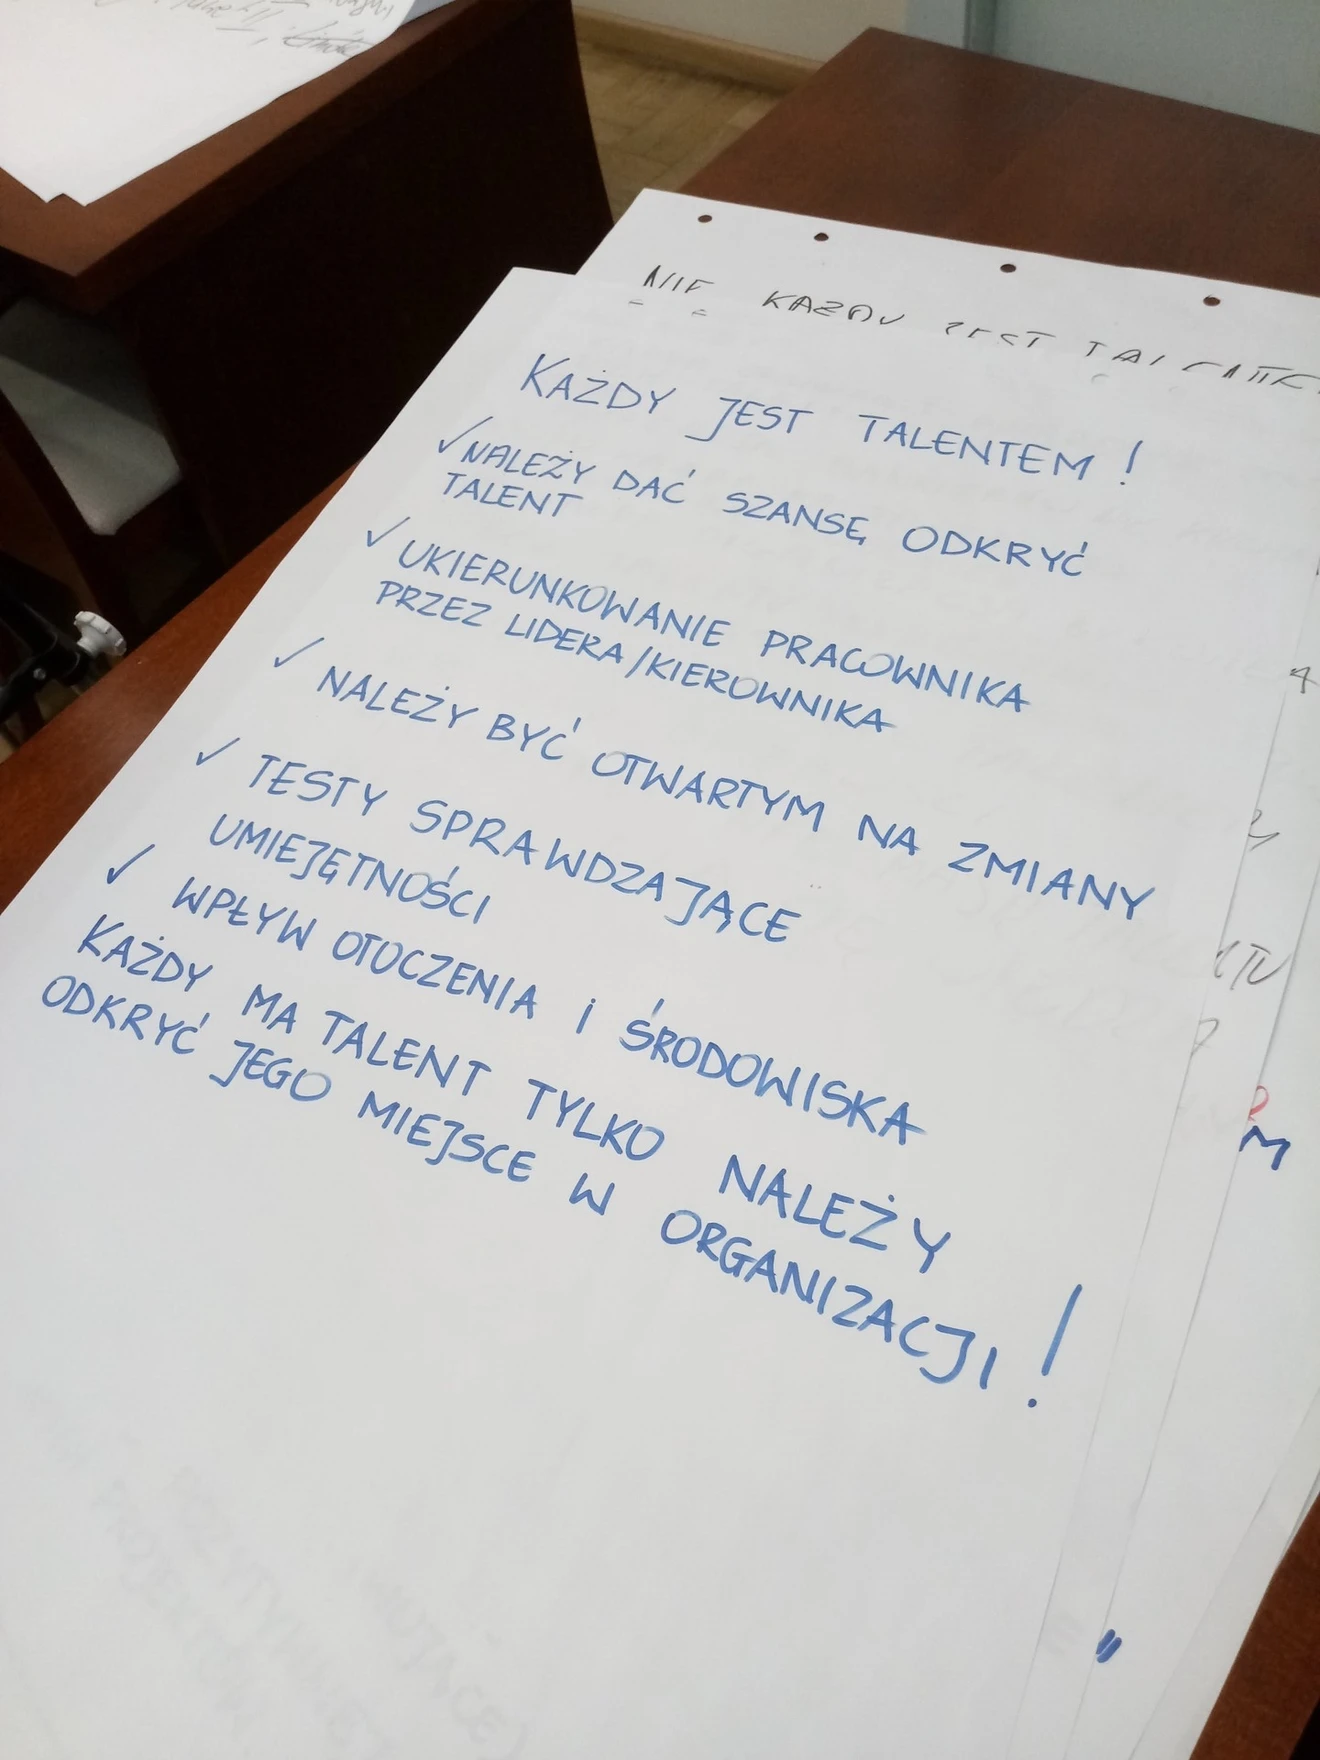 NIE KAŻDY JEST TALENTEM
KAŻDY JEST TALENTEM !
✓ NALEŻY DAĆ SZANSĘ ODKRYĆ
TALENT
✓ UKIERUNKOWANIE PRACOWNIKA
PRZEZ LIDERA/KIEROWNIKA
✓ NALEŻY BYĆ OTWARTYM NA ZMIANY
✓ TESTY SPRAWDZAJĄCE
UMIEJĘTNOŚCI
✓ WPŁYW OTOCZENIA i ŚRODOWISKA
KAŻDY MA TALENT TYLKO NALEŻY
ODKRYĆ JEGO MIEJSCE W ORGANIZACJI !